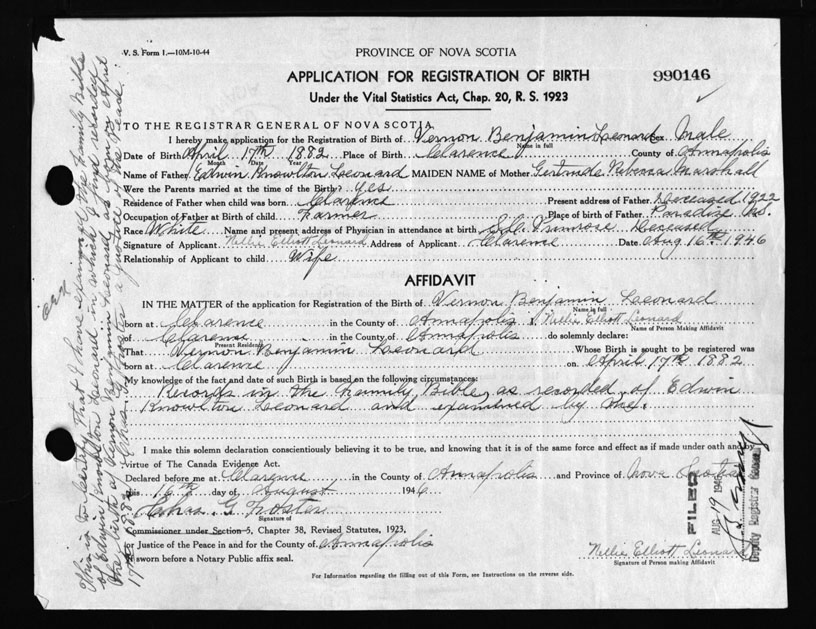 V. S. Form 1.—10M-10-44
PROVINCE OF NOVA SCOTIA
APPLICATION FOR REGISTRATION OF BIRTH
990146
Under the Vital Statistics Act, Chap. 20, R. S. 1923
TO THE REGISTRAR GENERAL OF NOVA SCOTIA
I hereby make application for the Registration of Birth of Vernon Benjamin Leonard Sex Male
Name in full
Date of Birth April 17th 1882 Place of Birth Clarence County of Annapolis
Month Date Year
Name of Father Edwin Knowlton Leonard MAIDEN NAME of Mother Gertrude Rebecca Marshall
Were the Parents married at the time of the Birth? yes
Residence of Father when child was born Clarence Present address of Father Deceased 1922
Occupation of Father at Birth of child Farmer Place of birth of Father Paradise
Race White Name and present address of Physician in attendance at birth Primrose Deceased
Signature of Applicant Nellie Elliott Leonard Address of Applicant Clarence Date Aug 16th 1946
Relationship of Applicant to child Wife
AFFIDAVIT
IN THE MATTER of the application for Registration of the Birth of Vernon Benjamin Leonard
Name in full
born at Clarence in the County of Annapolis I Nellie Elliott Leonard
Name of Person Making Affidavit
of Clarence in the County of Annapolis do solemnly declare:
Present Residence
That Vernon Benjamin Leonard Whose Birth is sought to be registered was
born at Clarence on April 17th 1882
My knowledge of the fact and date of such Birth is based on the following circumstances:
Records in the Family Bible, as recorded of Edwin
Knowlton Leonard and examined by me.
I make this solemn declaration conscientiously believing it to be true, and knowing that it is of the same force and effect as if made under oath and by
virtue of The Canada Evidence Act.
Declared before me at Clarence in the County of Annapolis and Province of Nova Scotia
this 16th day of August 1946
Chas. G. Foster
Signature of
Commissioner under Section 5, Chapter 38, Revised Statutes, 1923,
or Justice of the Peace in and for the County of Annapolis
If sworn before a Notary Public affix seal.
Nellie Elliott Leonard
Signature of Person making Affidavit
For Information regarding the filling out of this Form, see Instructions on the reverse side.
FILED
AUG 19 1946
Deputy Registrar General
This is to certify that I have examined the Family Bible
of Edwin Knowlton Leonard in which I find recorded
the birth of Vernon Benjamin Leonard, as born on April
17th 1882. Chas. G. Foster a Justice of the Peace.